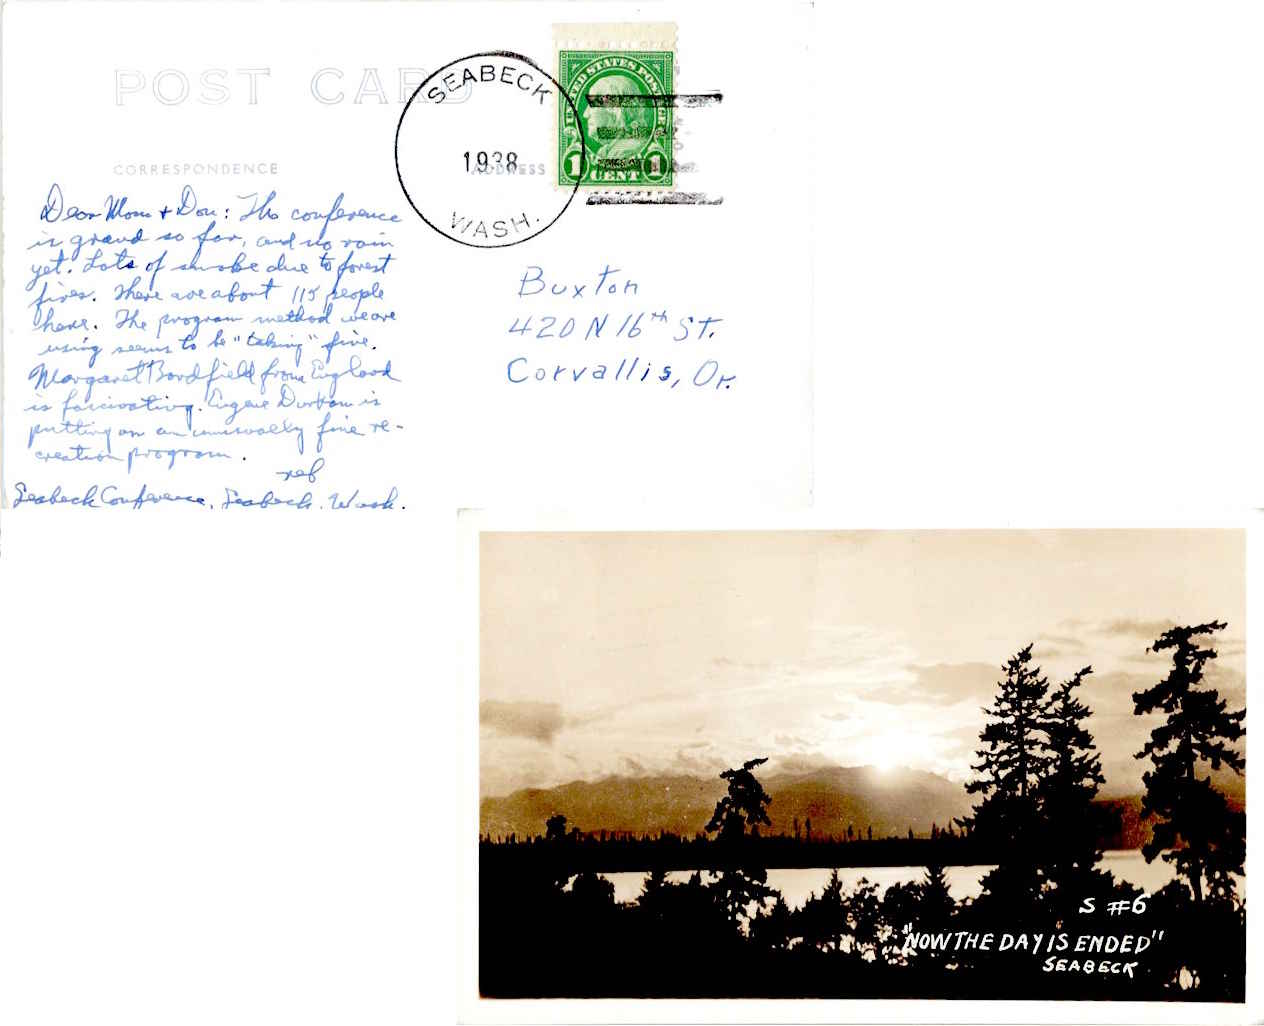 POST CARD
CORRESPONDENCE
ADDRESS
SEABECK
1938
WASH.
UNITED STATES POSTAGE
1 CENT 1
Dear Mom + Don: The conference
is grand so far, and no rain
yet. Lots of smoke due to forest
fires. There are about 115 people
here. The program method we are
using seems to be "taking" fine.
Margaret Bordfield from England
is fascinating. Eugene Durham is
putting on an unusually fine re-
creation program.
ref
Seabeck Conference, Seabeck, Wash.
Buxton
420 N 16th St.
Corvallis, Or.
S #6
"NOW THE DAY IS ENDED"
SEABECK